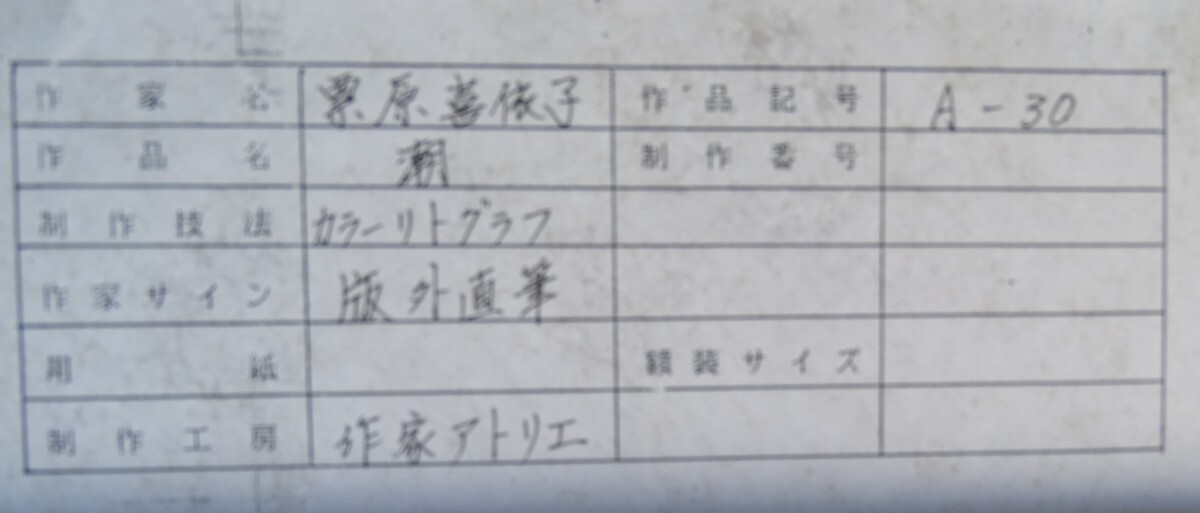 作家名 栗原喜依子 作品記号 A-30
作品名 潮 制作番号
制作技法 カラーリトグラフ
作家サイン 版外直筆
用紙 額装サイズ
制作工房 作家アトリエ